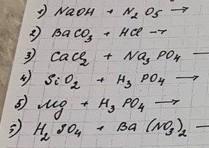 1) NaOH + N2O5 →
2) BaCO3 + HCl →
3) CaCl2 + Na3PO4 →
4) SiO2 + H3PO4 →
5) Mg + H3PO4 →
5) H2SO4 + Ba(NO3)2 →